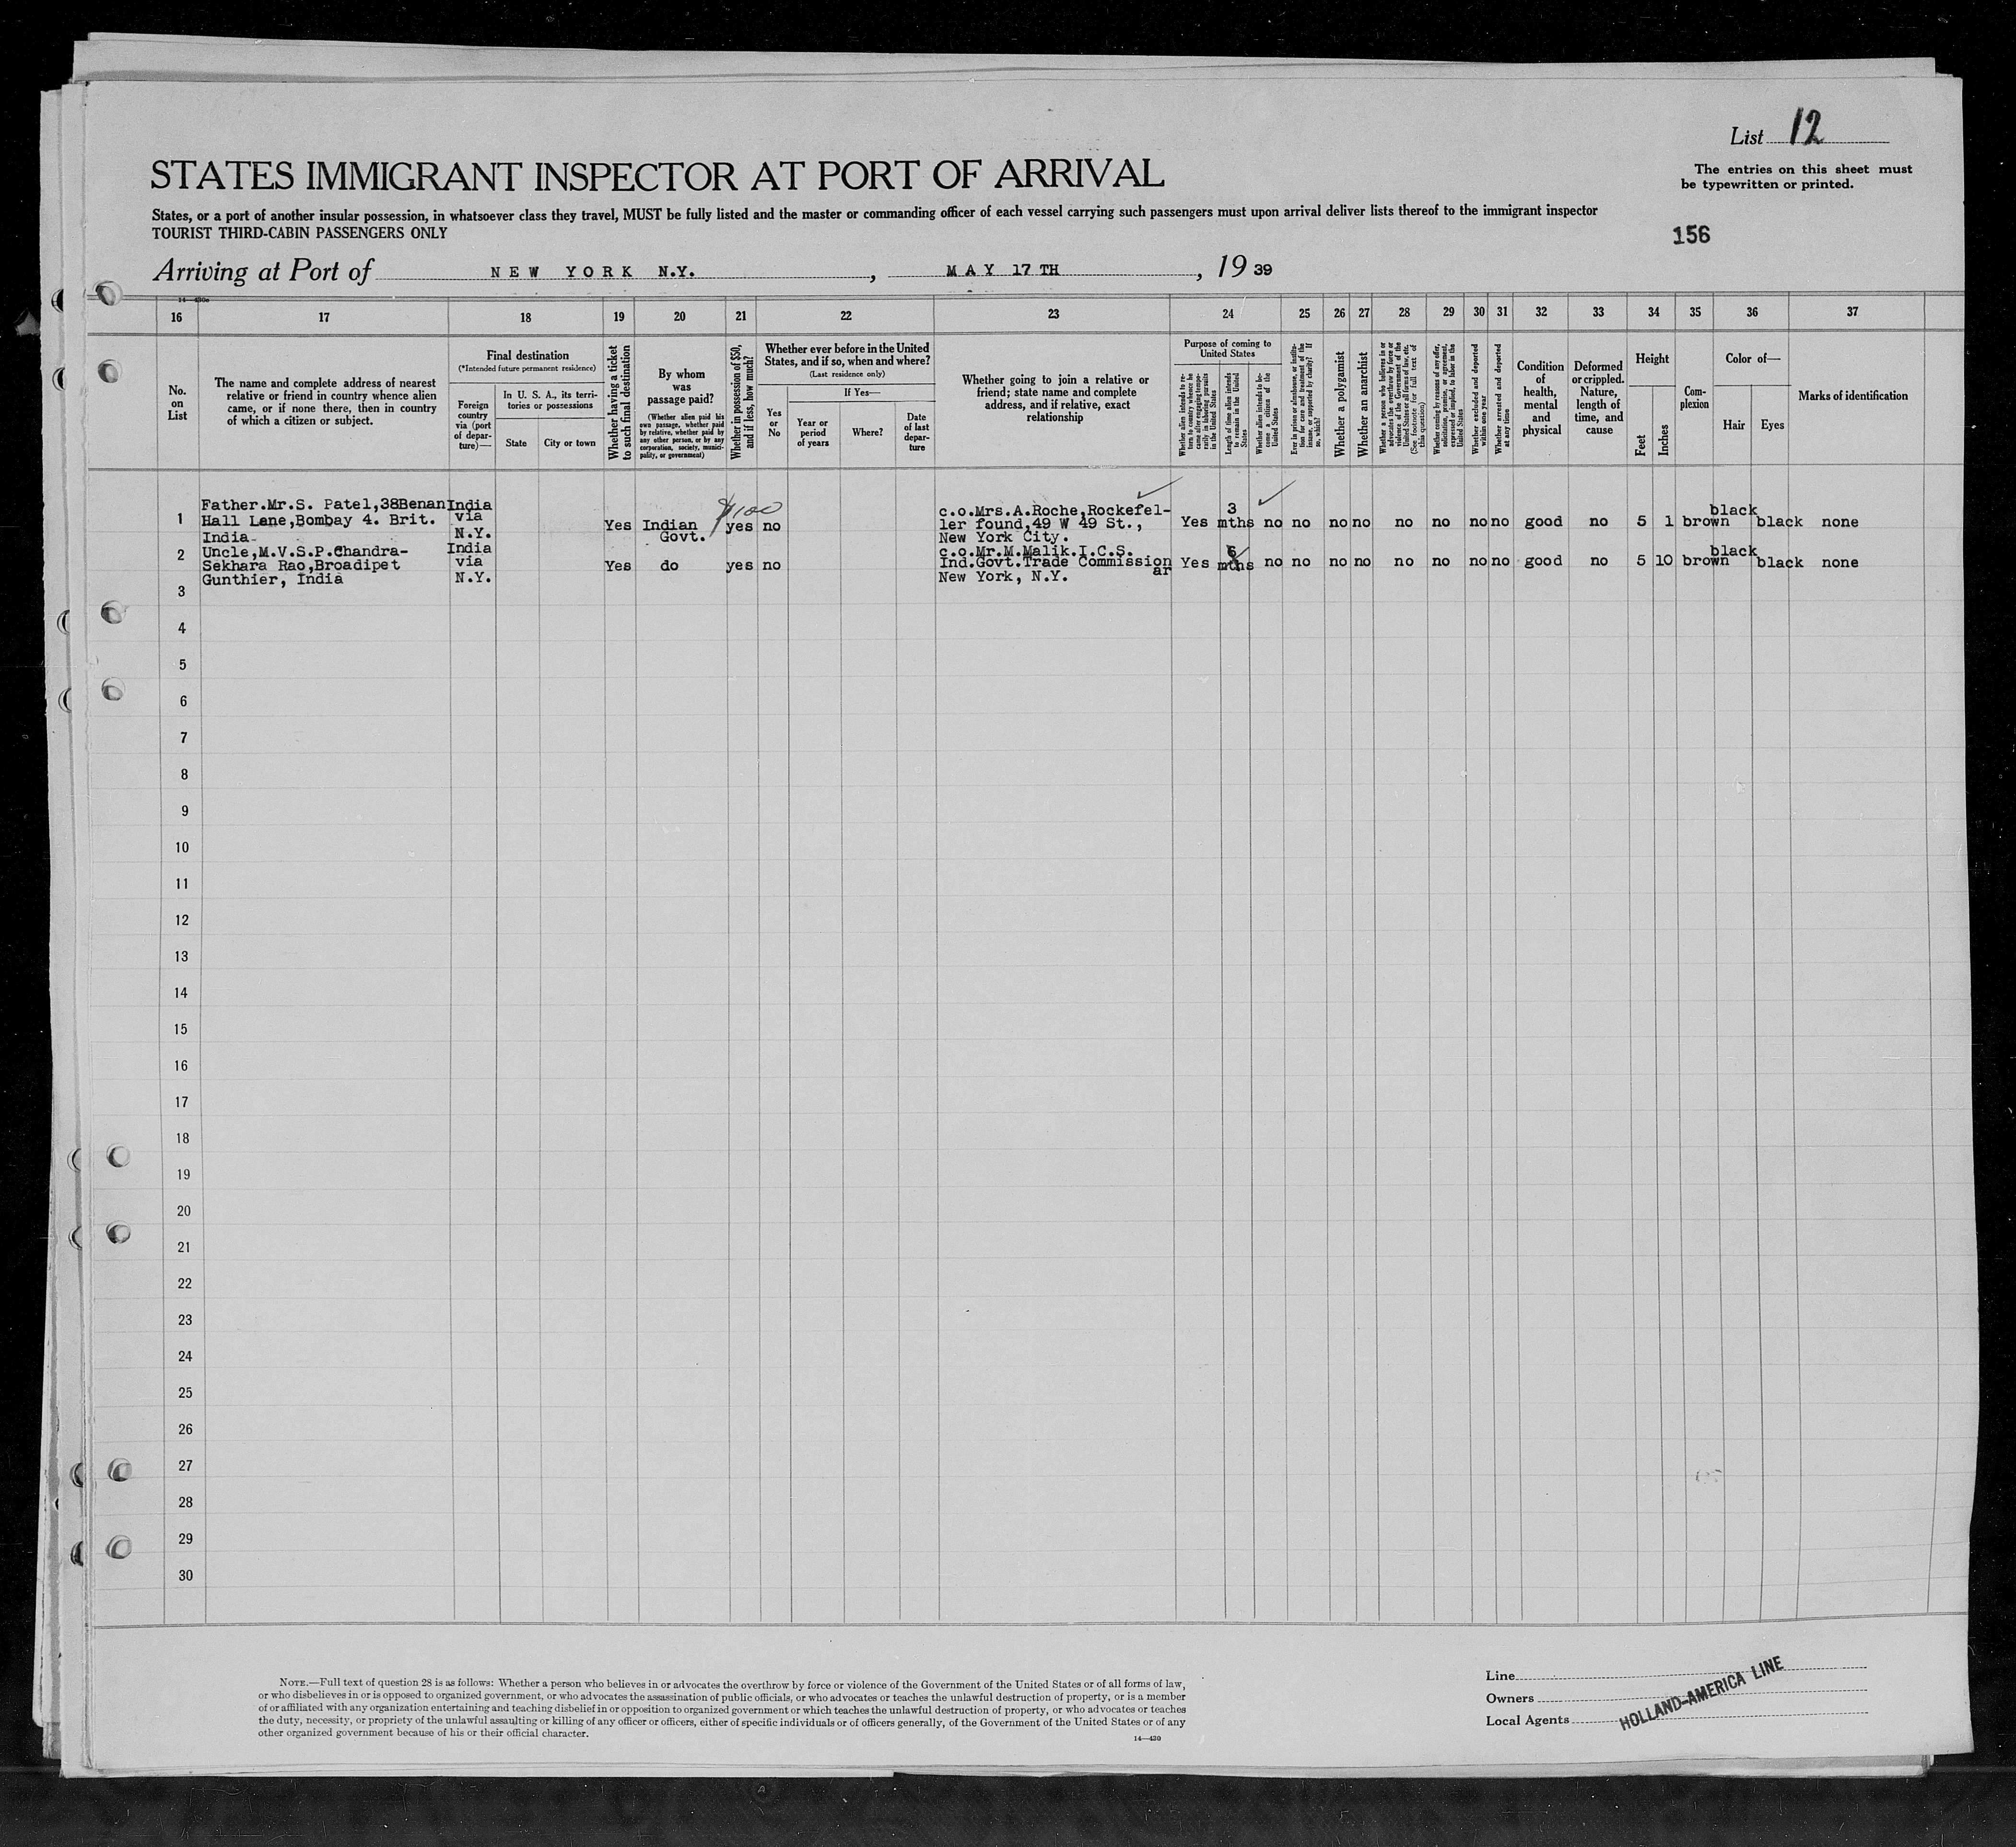 List 12
STATES IMMIGRANT INSPECTOR AT PORT OF ARRIVAL
The entries on this sheet must
be typewritten or printed.
States, or a port of another insular possession, in whatsoever class they travel, MUST be fully listed and the master or commanding officer of each vessel carrying such passengers must upon arrival deliver lists thereof to the immigrant inspector
TOURIST THIRD-CABIN PASSENGERS ONLY
156
Arriving at Port of NEW YORK N.Y., MAY 17TH, 1939
14—430a
16 17 18 19 20 21 22 23 24 25 26 27 28 29 30 31 32 33 34 35 36 37
No.
on
List
The name and complete address of nearest
relative or friend in country whence alien
came, or if none there, then in country
of which a citizen or subject.
Final destination
(*Intended future permanent residence)
Foreign
country
via (port
of depar-
ture)—
In U. S. A., its terri-
tories or possessions
State City or town
Whether having a ticket
to such final destination
By whom
was
passage paid?
(Whether alien paid his
own passage, whether paid
by relative, whether paid by
any other person, or by any
corporation, society, munici-
pality, or government)
Whether in possession of $50,
and if less, how much?
Whether ever before in the United
States, and if so, when and where?
(Last residence only)
Yes
or
No
If Yes—
Year or
period
of years
Where?
Date
of last
depar-
ture
Whether going to join a relative or
friend; state name and complete
address, and if relative, exact
relationship
Purpose of coming to
United States
Whether alien intends to re-
turn to country whence he
came after engaging tempo-
rarily in laboring pursuits
in the United States
Length of time alien intends
to remain in the United
States
Whether alien intends to be-
come a citizen of the
United States
Ever in prison or almshouse, or institu-
tion for care and treatment of the
insane, or supported by charity? If
so, which?
Whether a polygamist
Whether an anarchist
Whether a person who believes in or
advocates the overthrow by force or
violence of the Government of the
United States or all forms of law, etc.
(See footnote for full text of
this question)
Whether coming by reasons of any offer,
solicitation, promise, or agreement,
expressed or implied, to labor in the
United States
Whether excluded and deported
within one year
Whether arrested and deported
at any time
Condition
of
health,
mental
and
physical
Deformed
or crippled.
Nature,
length of
time, and
cause
Height
Feet
Inches
Com-
plexion
Color of—
Hair Eyes
Marks of identification
1 Father.Mr.S. Patel,38Benan India
Hall Lane,Bombay 4. Brit. via
India N.Y.
Yes Indian
Govt.
$100
yes no
c.o.Mrs.A.Roche,Rockefel-
ler found,49 W 49 St.,
New York City.
Yes 3
mths no no no no no no no no good no 5 1 brown black black none
2 Uncle,M.V.S.P.Chandra- India
Sekhara Rao,Broadipet via
Gunthier, India N.Y.
Yes do yes no
c.o.Mr.M.Malik.I.C.S.
Ind.Govt.Trade Commission
er
New York, N.Y.
Yes 6
mths no no no no no no no no good no 5 10 brown black black none
3
4
5
6
7
8
9
10
11
12
13
14
15
16
17
18
19
20
21
22
23
24
25
26
27
28
29
30
NOTE.—Full text of question 28 is as follows: Whether a person who believes in or advocates the overthrow by force or violence of the Government of the United States or of all forms of law,
or who disbelieves in or is opposed to organized government, or who advocates the assassination of public officials, or who advocates or teaches the unlawful destruction of property, or is a member
of or affiliated with any organization entertaining and teaching disbelief in or opposition to organized government or which teaches the unlawful destruction of property, or who advocates or teaches
the duty, necessity, or propriety of the unlawful assaulting or killing of any officer or officers, either of specific individuals or of officers generally, of the Government of the United States or of any
other organized government because of his or their official character.
14—430
Line
Owners
Local Agents
HOLLAND-AMERICA LINE